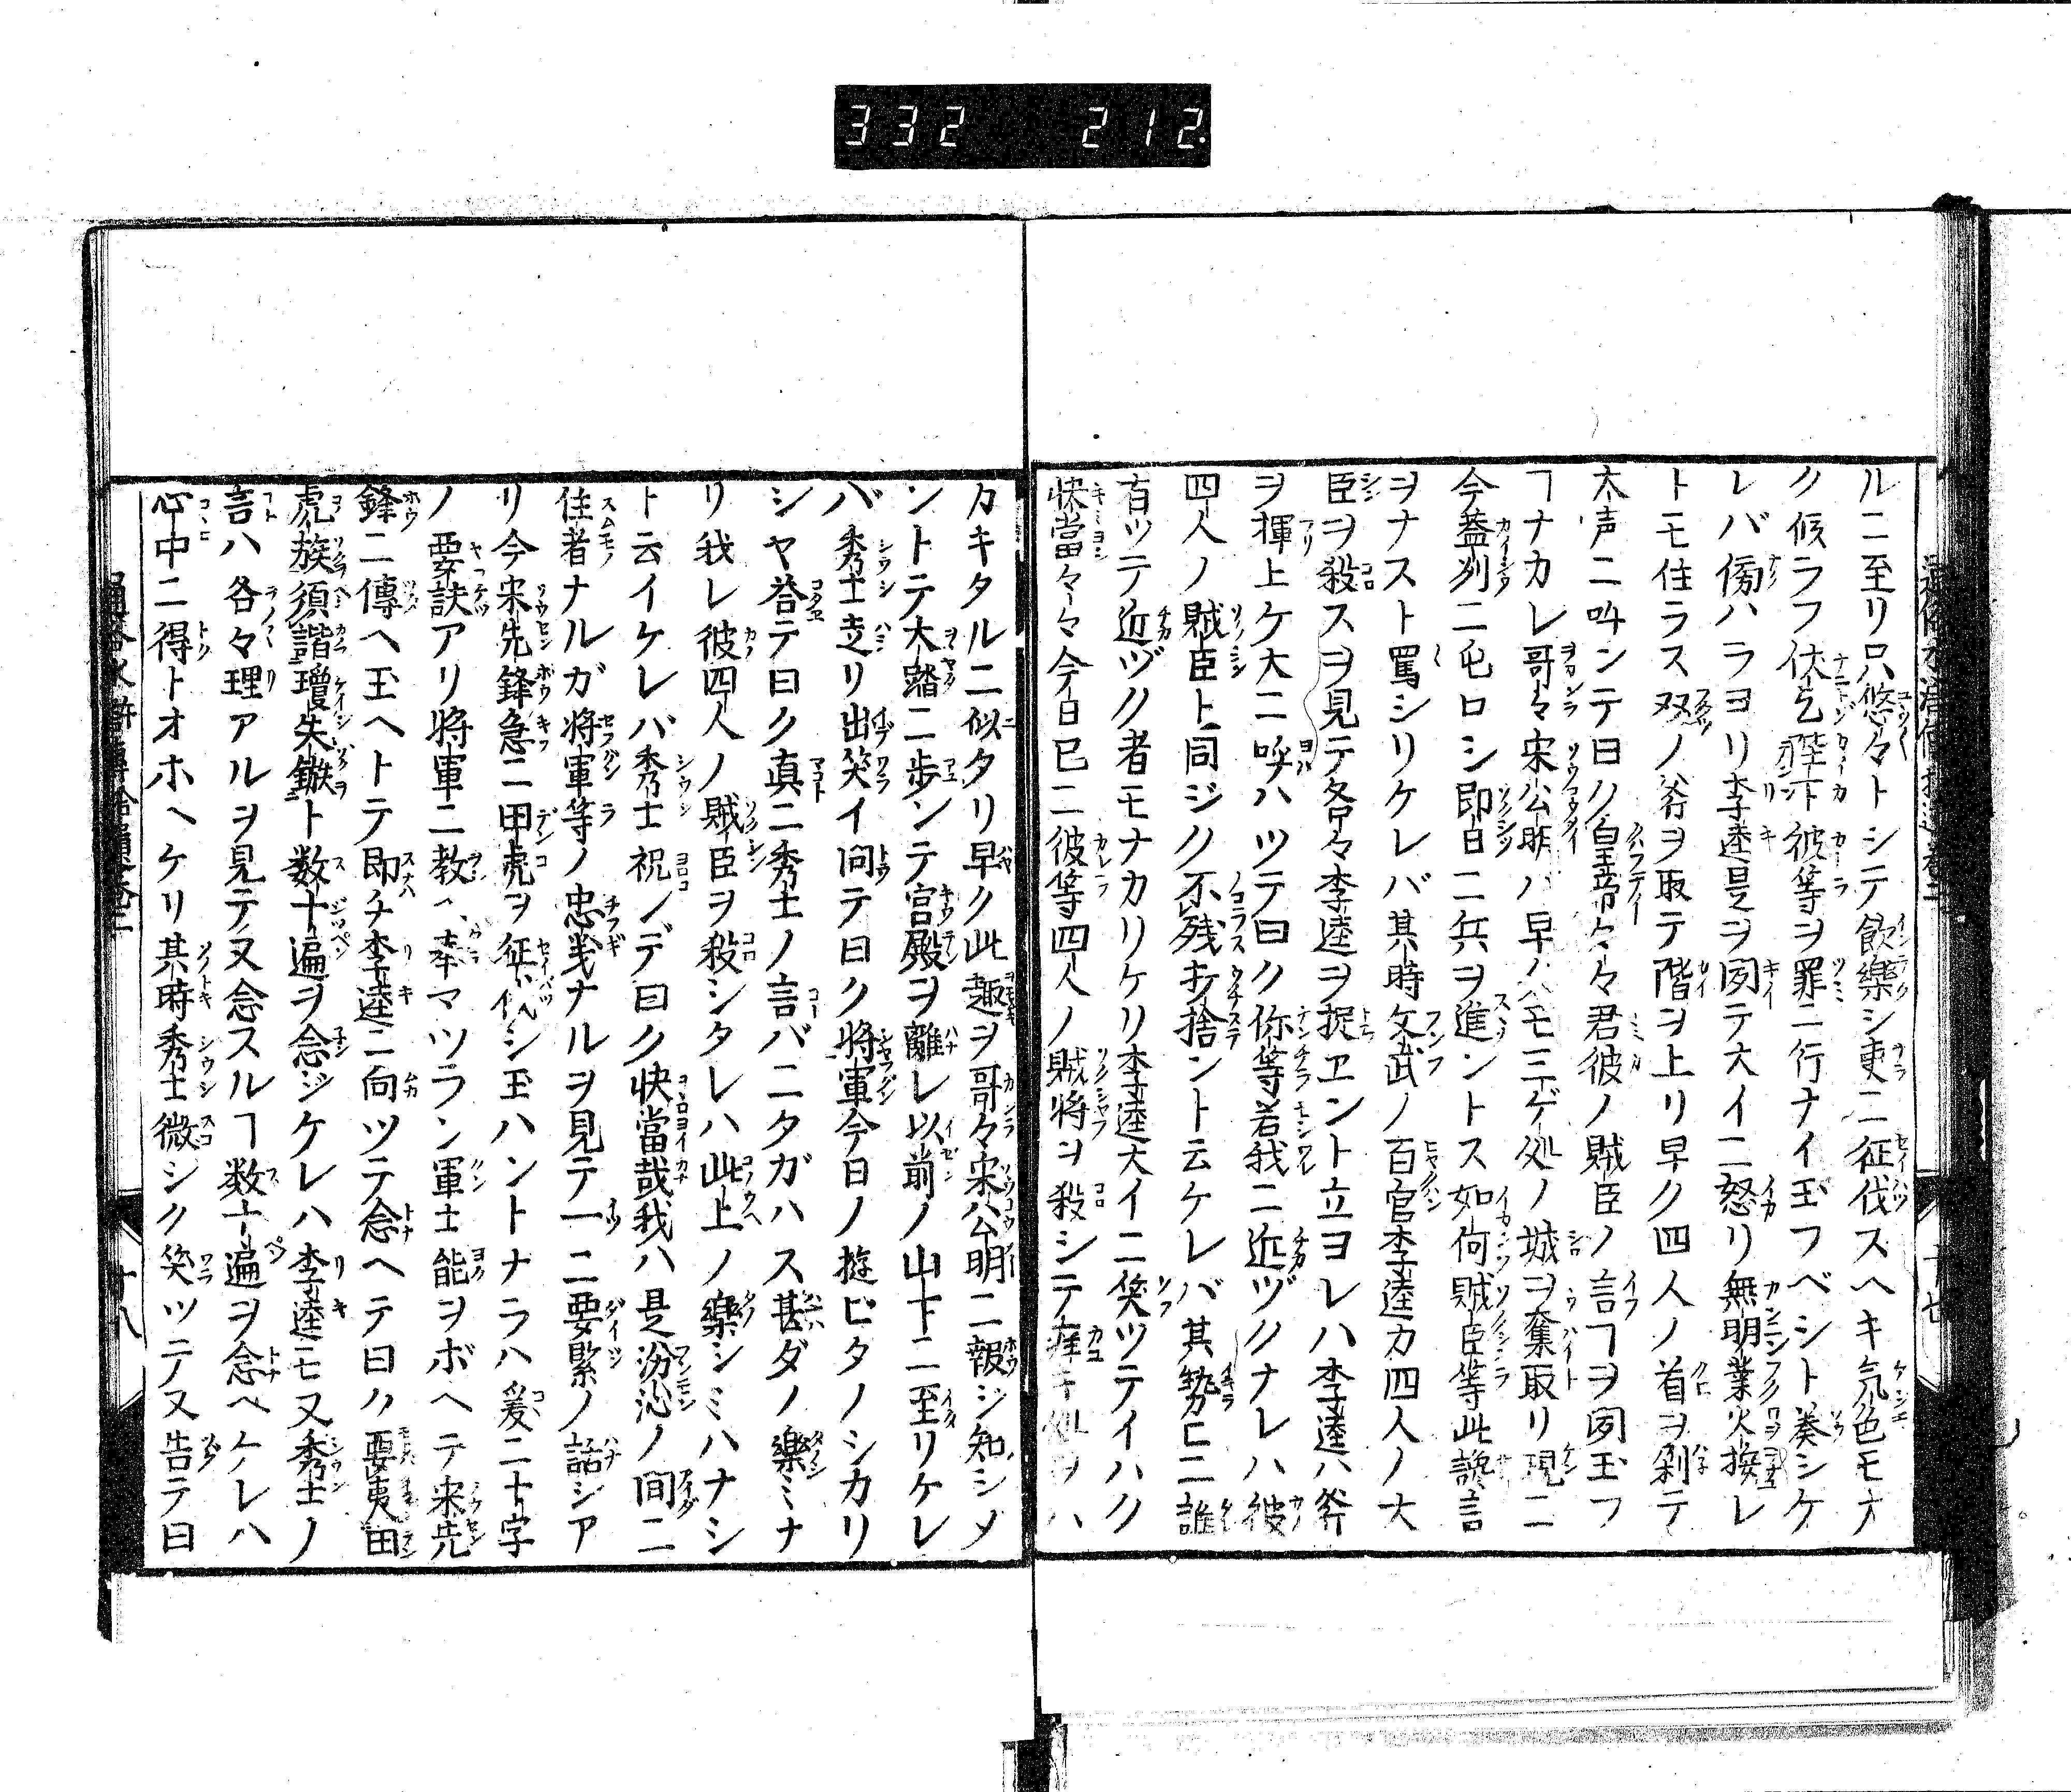 332 212.
ルニ至リ只悠々トシテ飲樂シ更ニ征伐スヘキ気色モナ
ク候ラフ伏乞陛下彼等ヲ罪ニ行ナイ玉フベシト奏シケ
レバ傍ハラヨリ李逵是ヲ聞テ大イニ怒リ無明業火按レ
トモ住ラス双ノ斧ヲ取テ階ヲ上リ早ク四人ノ首ヲ剁テ
大声ニ叫ンテ曰ク皇帝々々君彼ノ賊臣ノ言ヿヲ聞玉フ
ヿナカレ哥々宋公明ハ早ハモ三ゲ処ノ城ヲ奪取リ現ニ
今蓋州ニ屯ロシ即日ニ兵ヲ進ントス如何賊臣等此讒言
ヲナスト罵シリケレバ其時文武ノ百官李逵カ四人ノ大
臣ヲ殺スヲ見テ各々李逵ヲ捉ヱント立ヨレハ李逵ハ斧
ヲ揮上ケ大ニ呼ハツテ曰ク你等若我ニ近ヅクナレハ彼
四人ノ賊臣ト同ジク不残打捨ント云ケレバ其勢ヒニ誰
有ツテ近ヅク者モナカリケリ李逵大イニ笑ツテイハク
快當々々今日已ニ彼等四人ノ賊将ヲ殺シテ痒キ処ヲハ
カキタルニ似タリ早ク此趣ヲ哥々宋公明ニ報ジ知シメ
ントテ大踏ニ歩ンテ宮殿ヲ離レ以前ノ山下ニ至リケレ
バ秀士走リ出笑イ問テ曰ク将軍今日ノ遊ビタノシカリ
シヤ答テ曰ク真ニ秀士ノ言バニタガハス甚ダノ樂ミナ
リ我レ彼四人ノ賊臣ヲ殺シタレハ此上ノ樂シミハナシ
ト云イケレバ秀士祝ンデ曰ク快當哉我ハ是汾沁ノ間ニ
住者ナルガ将軍等ノ忠義ナルヲ見テ一ニ要緊ノ話シア
リ今宋先鋒急ニ田虎ヲ征伐シ玉ハントナラハ爰ニ十字
ノ要訣アリ将軍ニ教ヘ奉マツラン軍士能ヲボヘテ宋先
鋒ニ傳ヘ玉ヘトテ即チ李逵ニ向ツテ念ヘテ曰ク要夷田
虎族須諧瓊矢鏃ト数十遍ヲ念ジケレハ李逵モ又秀士ノ
言ハ各々理アルヲ見テ又念スルヿ数十遍ヲ念ヘケレハ
心中ニ得トオホヘケリ其時秀士微シク笑ツテ又告テ曰
十八